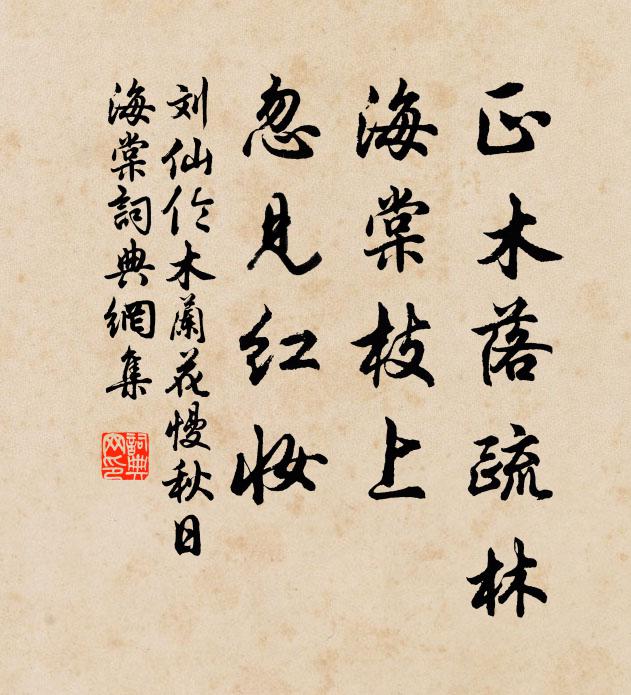 正木落疏林
海棠枝上
忽見红妆
刘仙伦木蘭花慢秋日
海棠詞典網集
詞典网印